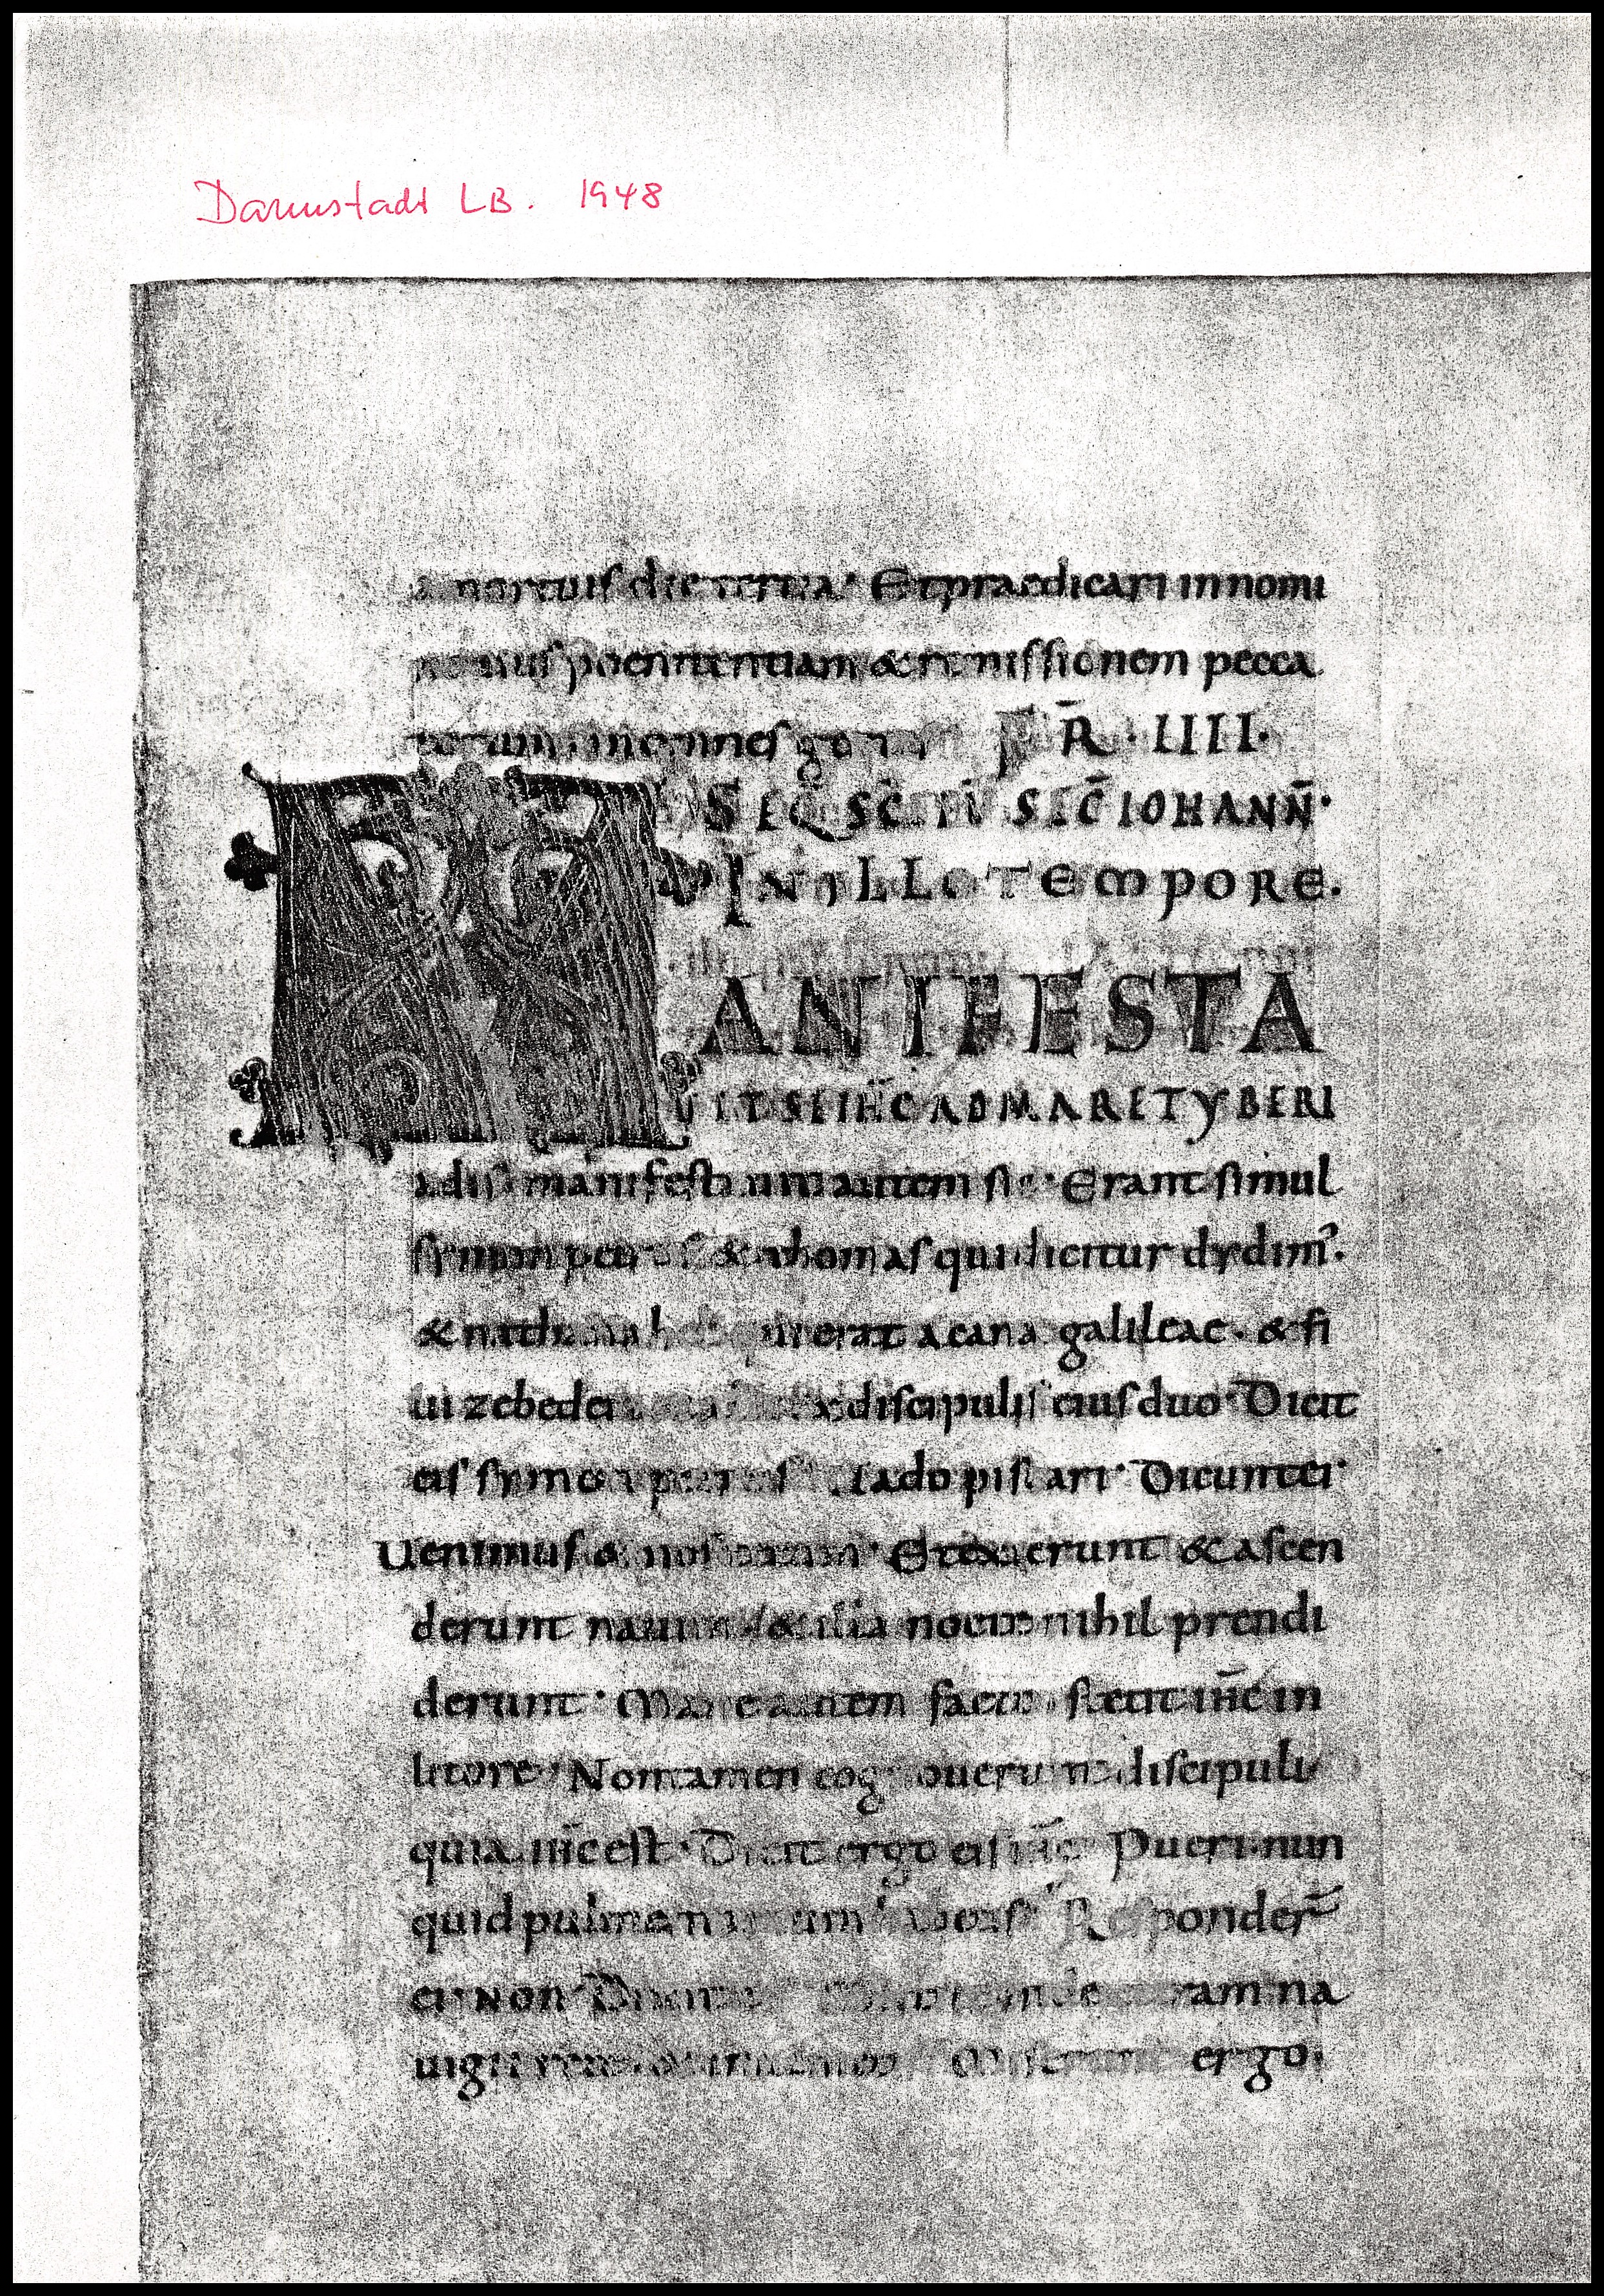 Darmstadt LB. 1948
a mortuis die tertia · Et praedicari in nomi
poenitentiam & remissionem pecca
torum in omnes gentes FR̄ · IIII ·
SEQ̄ SC̄I EV̄ SEC̄ IOHANN̄ ·
IN ILLO TEMPORE .
MANIFESTA
VIT SE IHC̄ AD MARE TYBERI
adis manifestavit autem sic · Erant simul
symon petrus & thomas qui dicitur dydim᾿ .
& nathanahel qui erat a cana galileae . & fi
lii zebedei & discipulis eius duo · Dicit
eis symon petrus Uado piscari · Dicunt ei ·
Uenimus & nos tecum · Et exierunt & ascen
derunt navim & illa nocte nihil prendi
derunt · Mane autem facto stetit ihc̄ in
litore · Non tamen cognouerunt discipuli
quia ihc̄ est · Dicit ergo eis ihc̄ Pueri nun
quid pulmentarium habetis Responder̄
ei · Non · Dicit eis Mittite in dexteram na
uigii rete & invenietis Miserunt ergo .